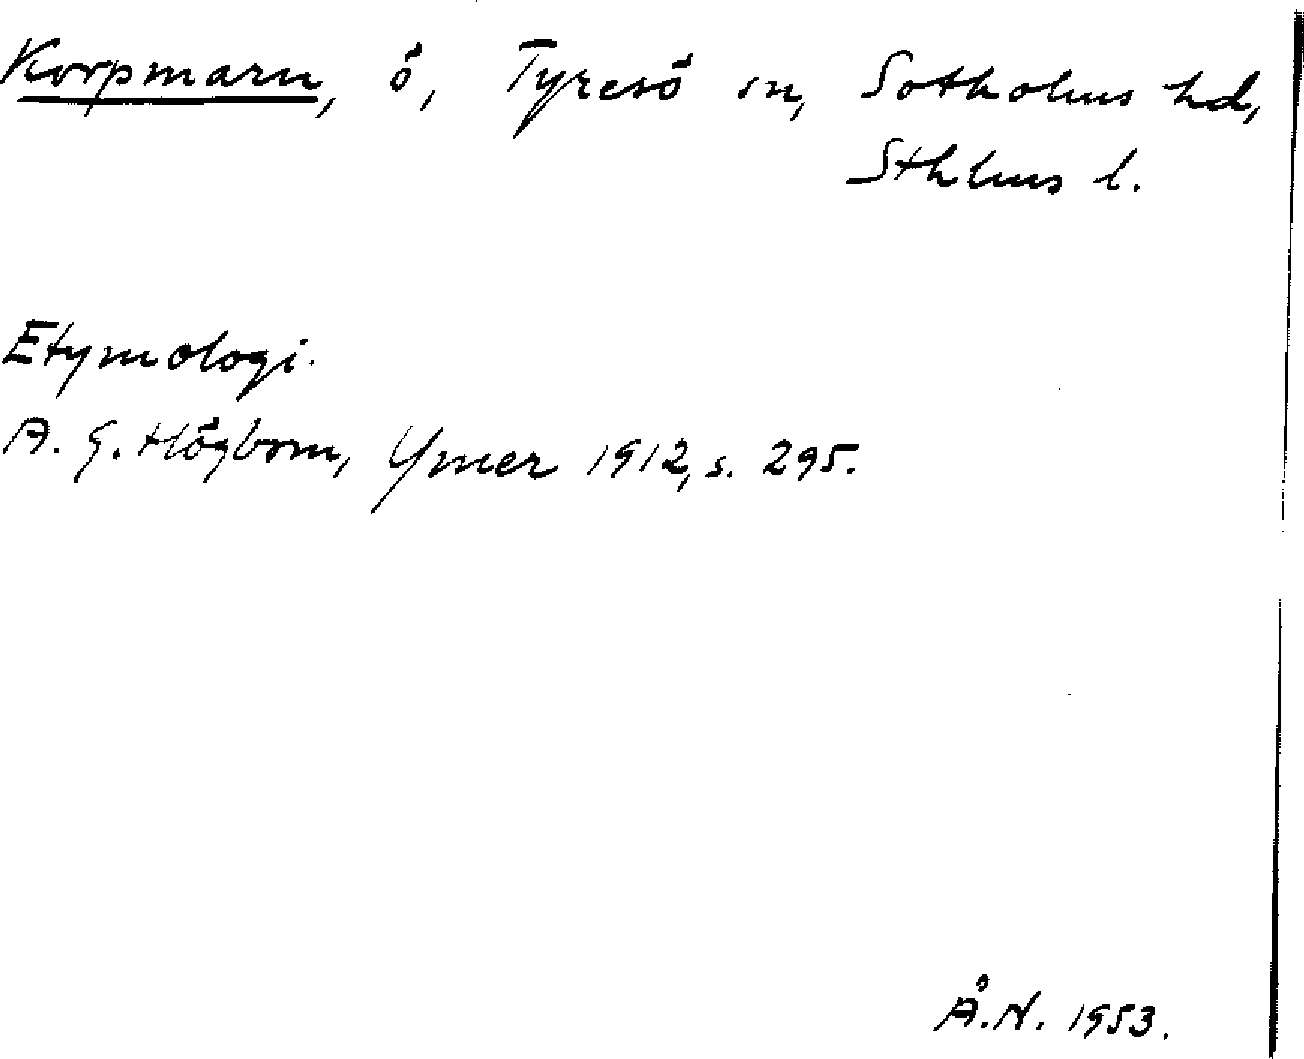 Korpmaren, ö, Tyresö sn, Sotholms hd,
Sthlms l.
Etymologi.
A. G. Högbom, Ymer 1912, s. 295.
Å.N. 1953.